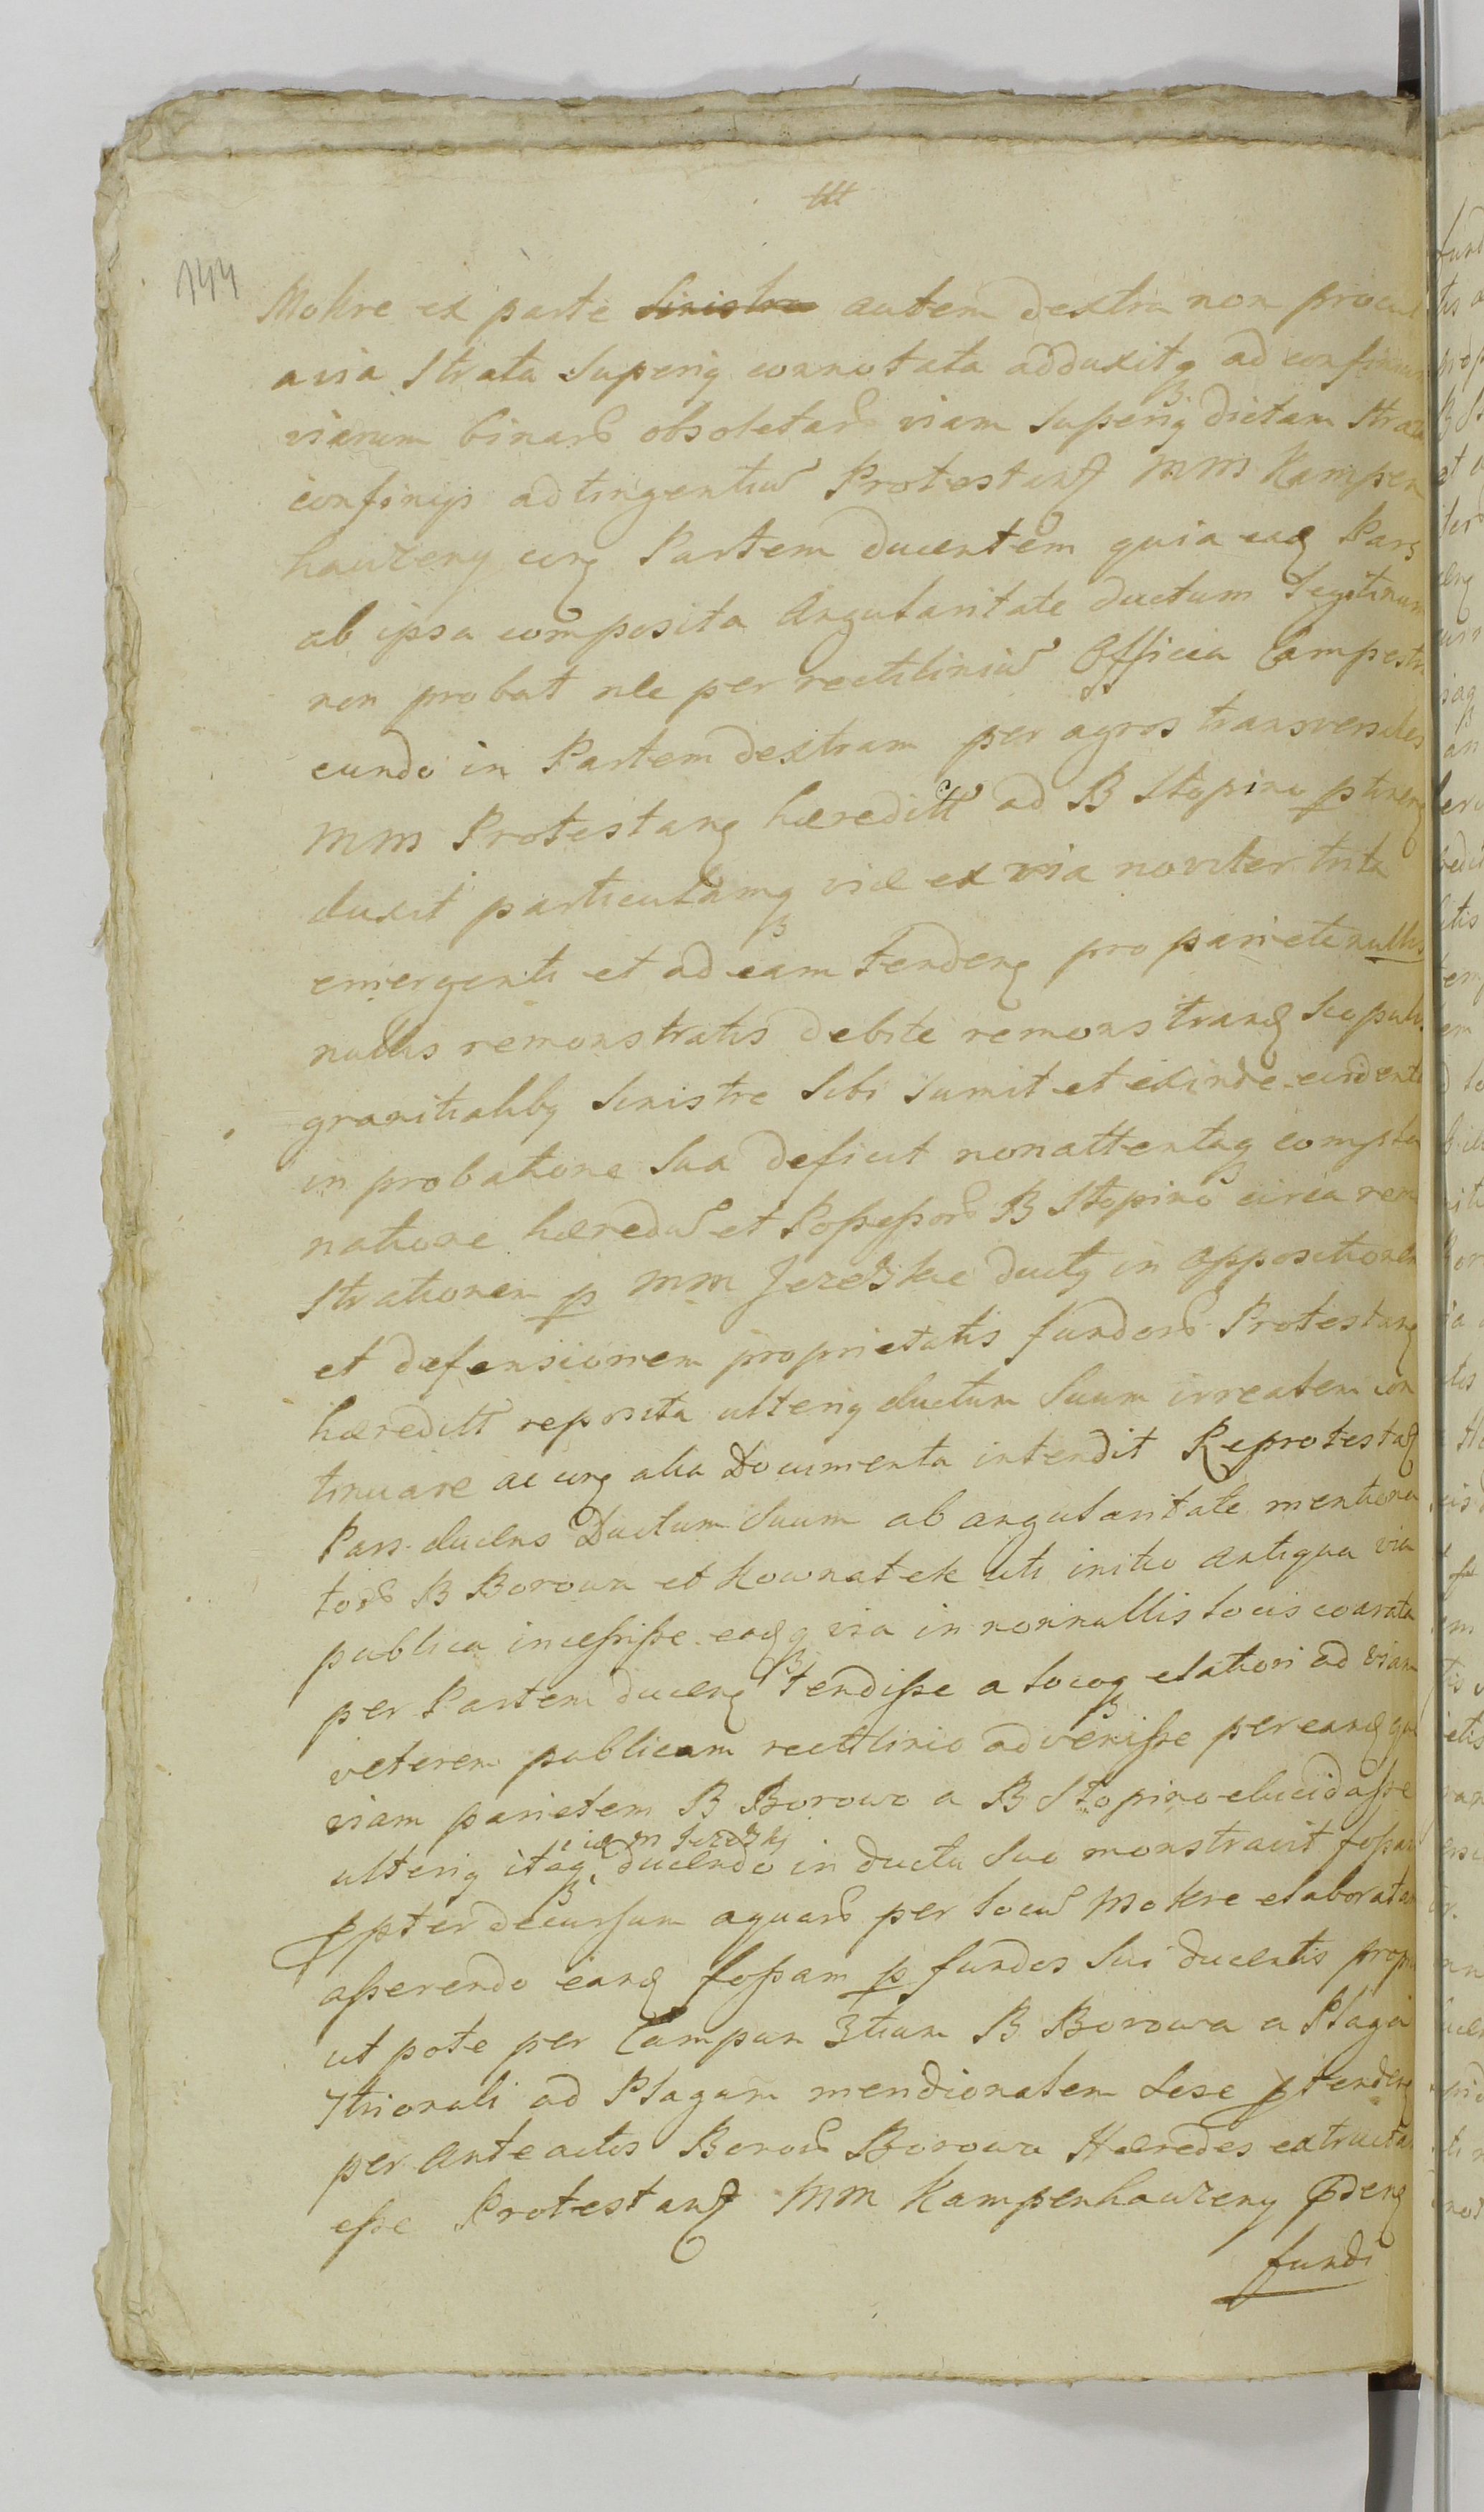 144
Mokre ex parte sinistra autem dextra non procul
a via strata superiq connotata adduxitq ad confinium
viarum binar obsoletar viam superiq dictam strata
confinijs adtingentiu Protestanq MM Kampen
hauzeny cong Partem ducentem quia eaq Pars
ab ipsa composita Angularitate ductum legitimum
non probat nle per rectiliniu Officia Campestr
eundo in Partem dextram per agros transversales
MM Protestanq hæreditt ad B Stopino ptineng
duxit particulamq viæ ex via noviter trita
emergenti et ad eam tendenq pro pariete nullis
nullis remonstratis debite remonstranq scopulis
granitialibq sinistre sibi sumit et exinde evidenti
in probatione sua deficit nonattentaq compla
natione hæredu et Possessor B Stopino circa rem
strationem p MM Jezezkie ductq in oppositionem
et defensionem proprietatis fundor Protestanq
hæreditt reposita ulteriq ductum suum irrealem con
tinuare ac cong alia Documenta intendit Reprotestaq
Pars ducens Ductum suum ab angularitate mentiona
tor B Borowa et Kownatek uti initio antiqua via
publica incessisse eaqq via in nonnullis locis coarata
per Partem ducenq tendisse a locoq elatiori ad viam
veterem publicam rectilinio advenisse per eanq que
viam parietem B Borowo a B Stopino elucidasse
ulteriq itaq ducendo in ductu suo monstravit fossam
ppter decursum aquar per locu Mokre elaborata
asserendo eanq fossam p fundos sui ducentis propri
ut pote per Campum 3tium B Borowa a Plaga
7trionali ad Plagam meridionalem sese ptendenq
per anteactos Bonor Borowa Hæredes extructa
esse Protestanq MM Kampenhauzeny
fundi